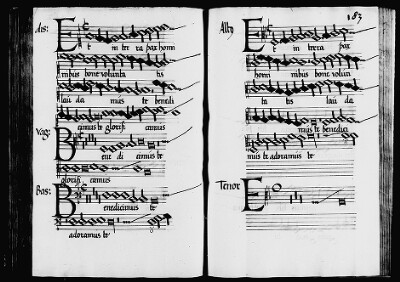 dis:
Et in terra pax homi
nibus bone volunta tis
lau da mus te benedi
camus te glorifi camus
Vag:
Bene di camus te
glorifi camus
Bas:
Benedicimus te
adoramus te
183
Alt9
Et in terra pax
homi nibus bone volun
ta tis lau da
mus te benedici
mus te adoramus te
Tenor
E